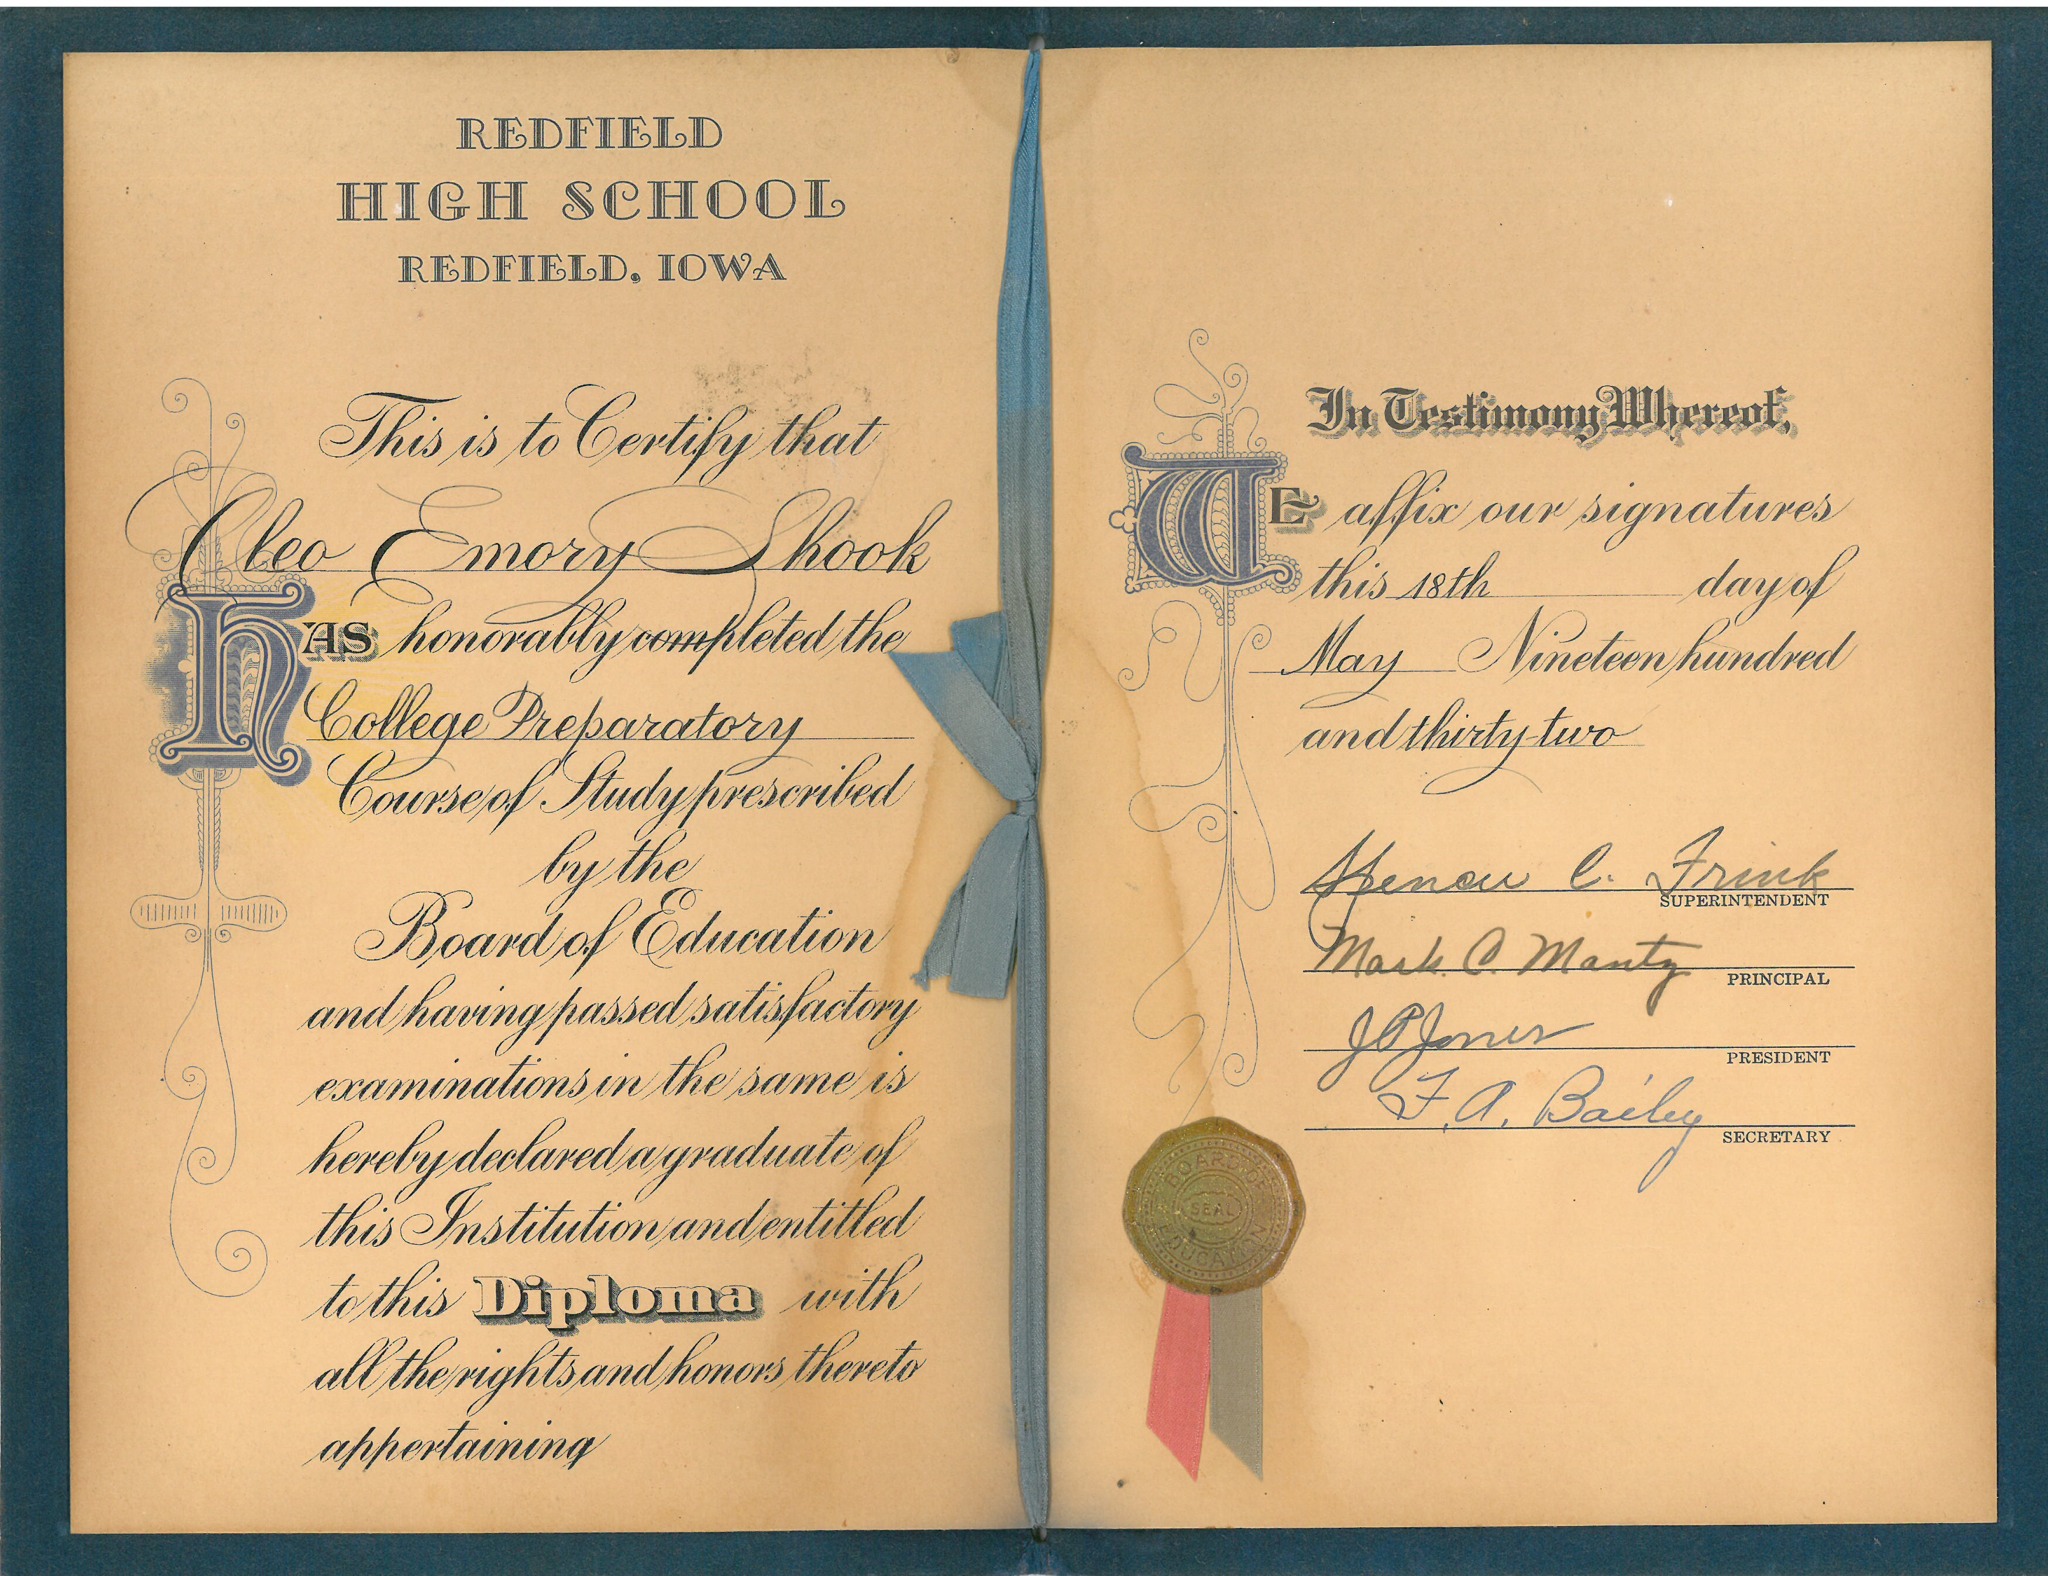 REDFIELD
HIGH SCHOOL
REDFIELD, IOWA
This is to Certify that
Cleo Emory Shook
HAS honorably completed the
College Preparatory
Course of Study prescribed
by the
Board of Education
and having passed satisfactory
examinations in the same is
hereby declared a graduate of
this Institution and entitled
to this Diploma with
all the rights and honors thereto
appertaining
In Testimony Whereof,
WE affix our signatures
this 18th day of
May Nineteen hundred
and thirty-two
Spencer C. Frink
SUPERINTENDENT
Mark C. Mantz
PRINCIPAL
J P Jones
PRESIDENT
F. A. Bailey
SECRETARY
BOARD OF
SEAL
EDUCATION